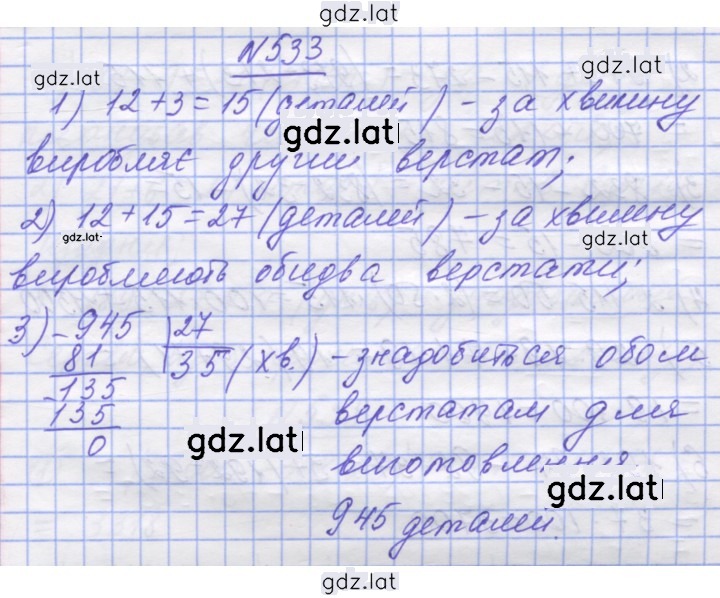 gdz.lat
№533
gdz.lat
1) 12+3=15 (деталей) - за хвилину
gdz.lat
виробляє другий верстат;
2) 12+15=27 (деталей) - за хвилину
gdz.lat
gdz.lat
виробляють обидва верстати;
3) -945 |27
81 35 (хв.) - знадобиться обом
-135 верстатам для
135
0 виготовлення
gdz.lat
gdz.lat
945 деталей.
gdz.lat